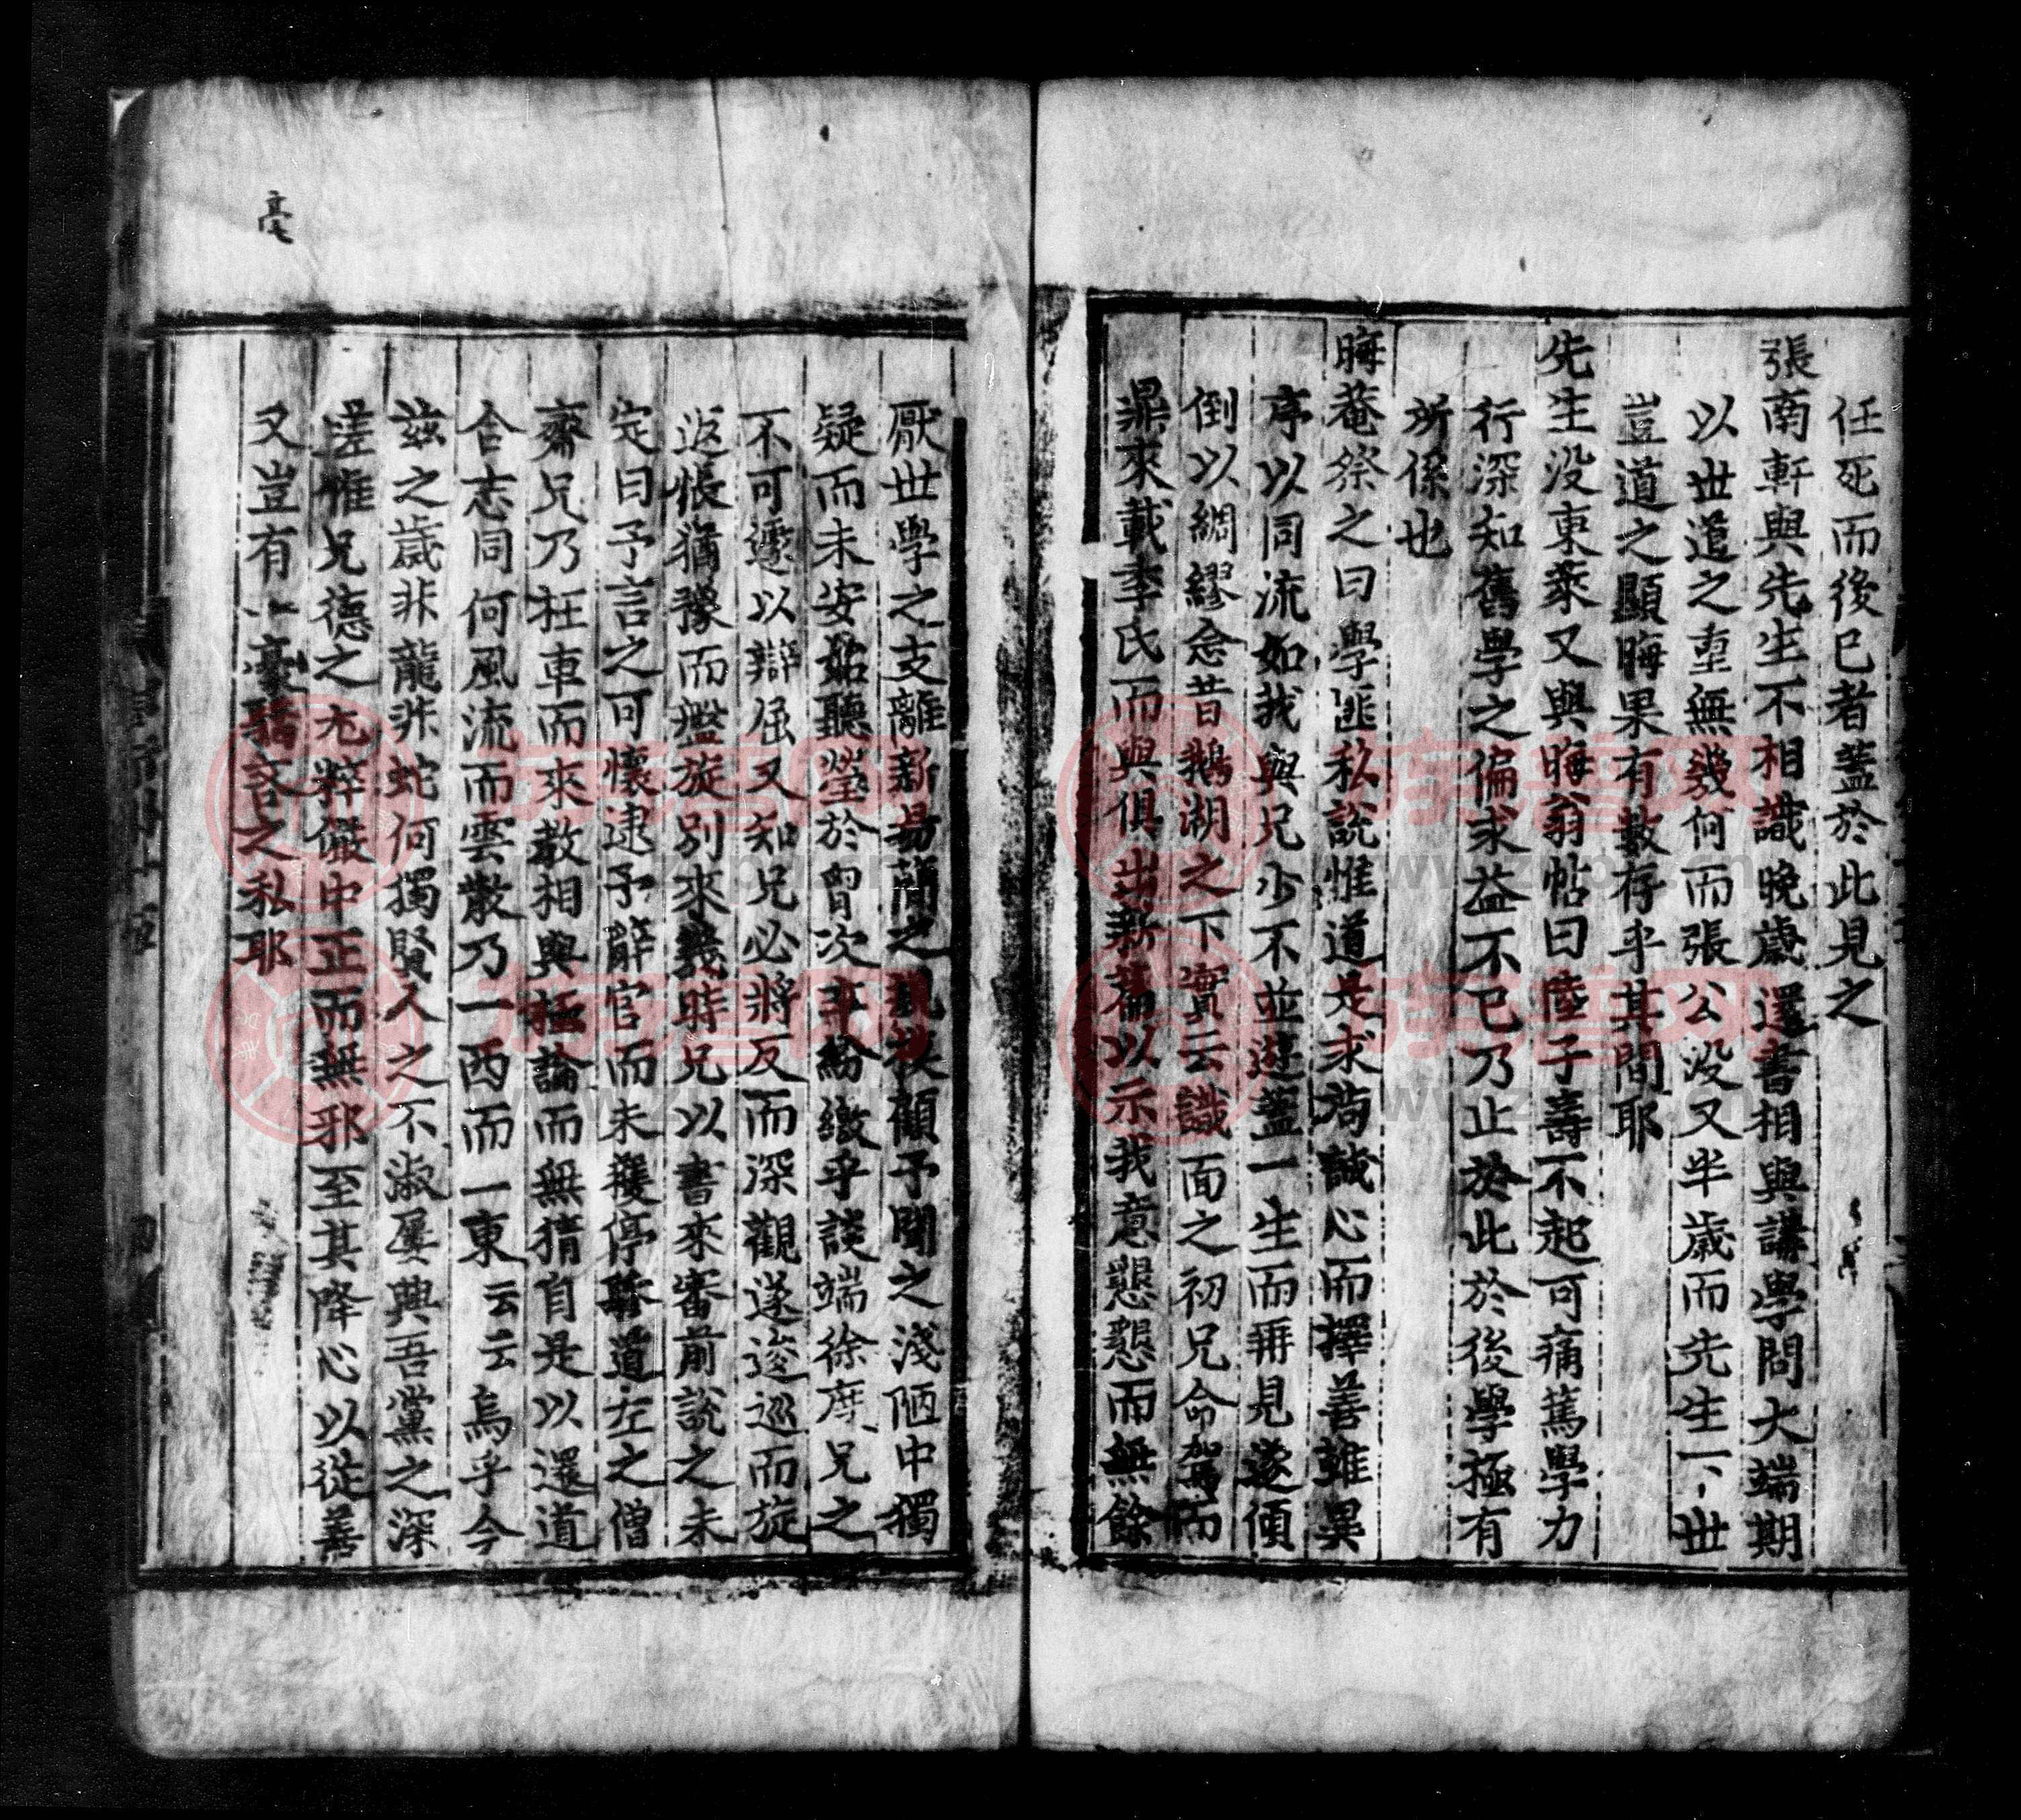 任死而後已者蓋於此見之
張南軒與先生不相識晚歲還書相與講學問大端期
以世道之重無幾何而張公没又半歲而先生下世
豈道之顯晦果有數存乎其間耶
先生没東萊又與晦翁帖曰陸子壽不起可痛篤學力
行深知舊學之偏求益不已乃止於此於後學極有
所係也
晦菴祭之曰學匪私說惟道是求苟誠心而擇善雖異
序以同流如我與兄少不並遊蓋一生而再見遂傾
倒以綢繆念昔鵝湖之下實云識面之初兄命駕而
鼎來載季氏而與俱出新篇以示我意懇懇而無餘
厭世學之支離新易簡之規模顧予聞之淺陋中獨
疑而未安始聽瑩於胷次卒紛繳乎談端徐度兄之
不可遽以辯屈又知兄必將反而深觀遂逡巡而旋
返悵猶豫而盤旋別來幾時兄以書來審前說之未
定曰予言之可懷逮予辭官而未獲停驂道左之僧
齋兄乃枉車而來教相與極論而無猜自是以還道
合志同何風流而雲散乃一西而一東云云烏乎今
茲之歲非龍非蛇何獨賢人之不淑屢興吾黨之深
嗟惟兄德之尤粹儼中正而無邪至其降心以從善
又豈有一豪驕吝之私耶
毫